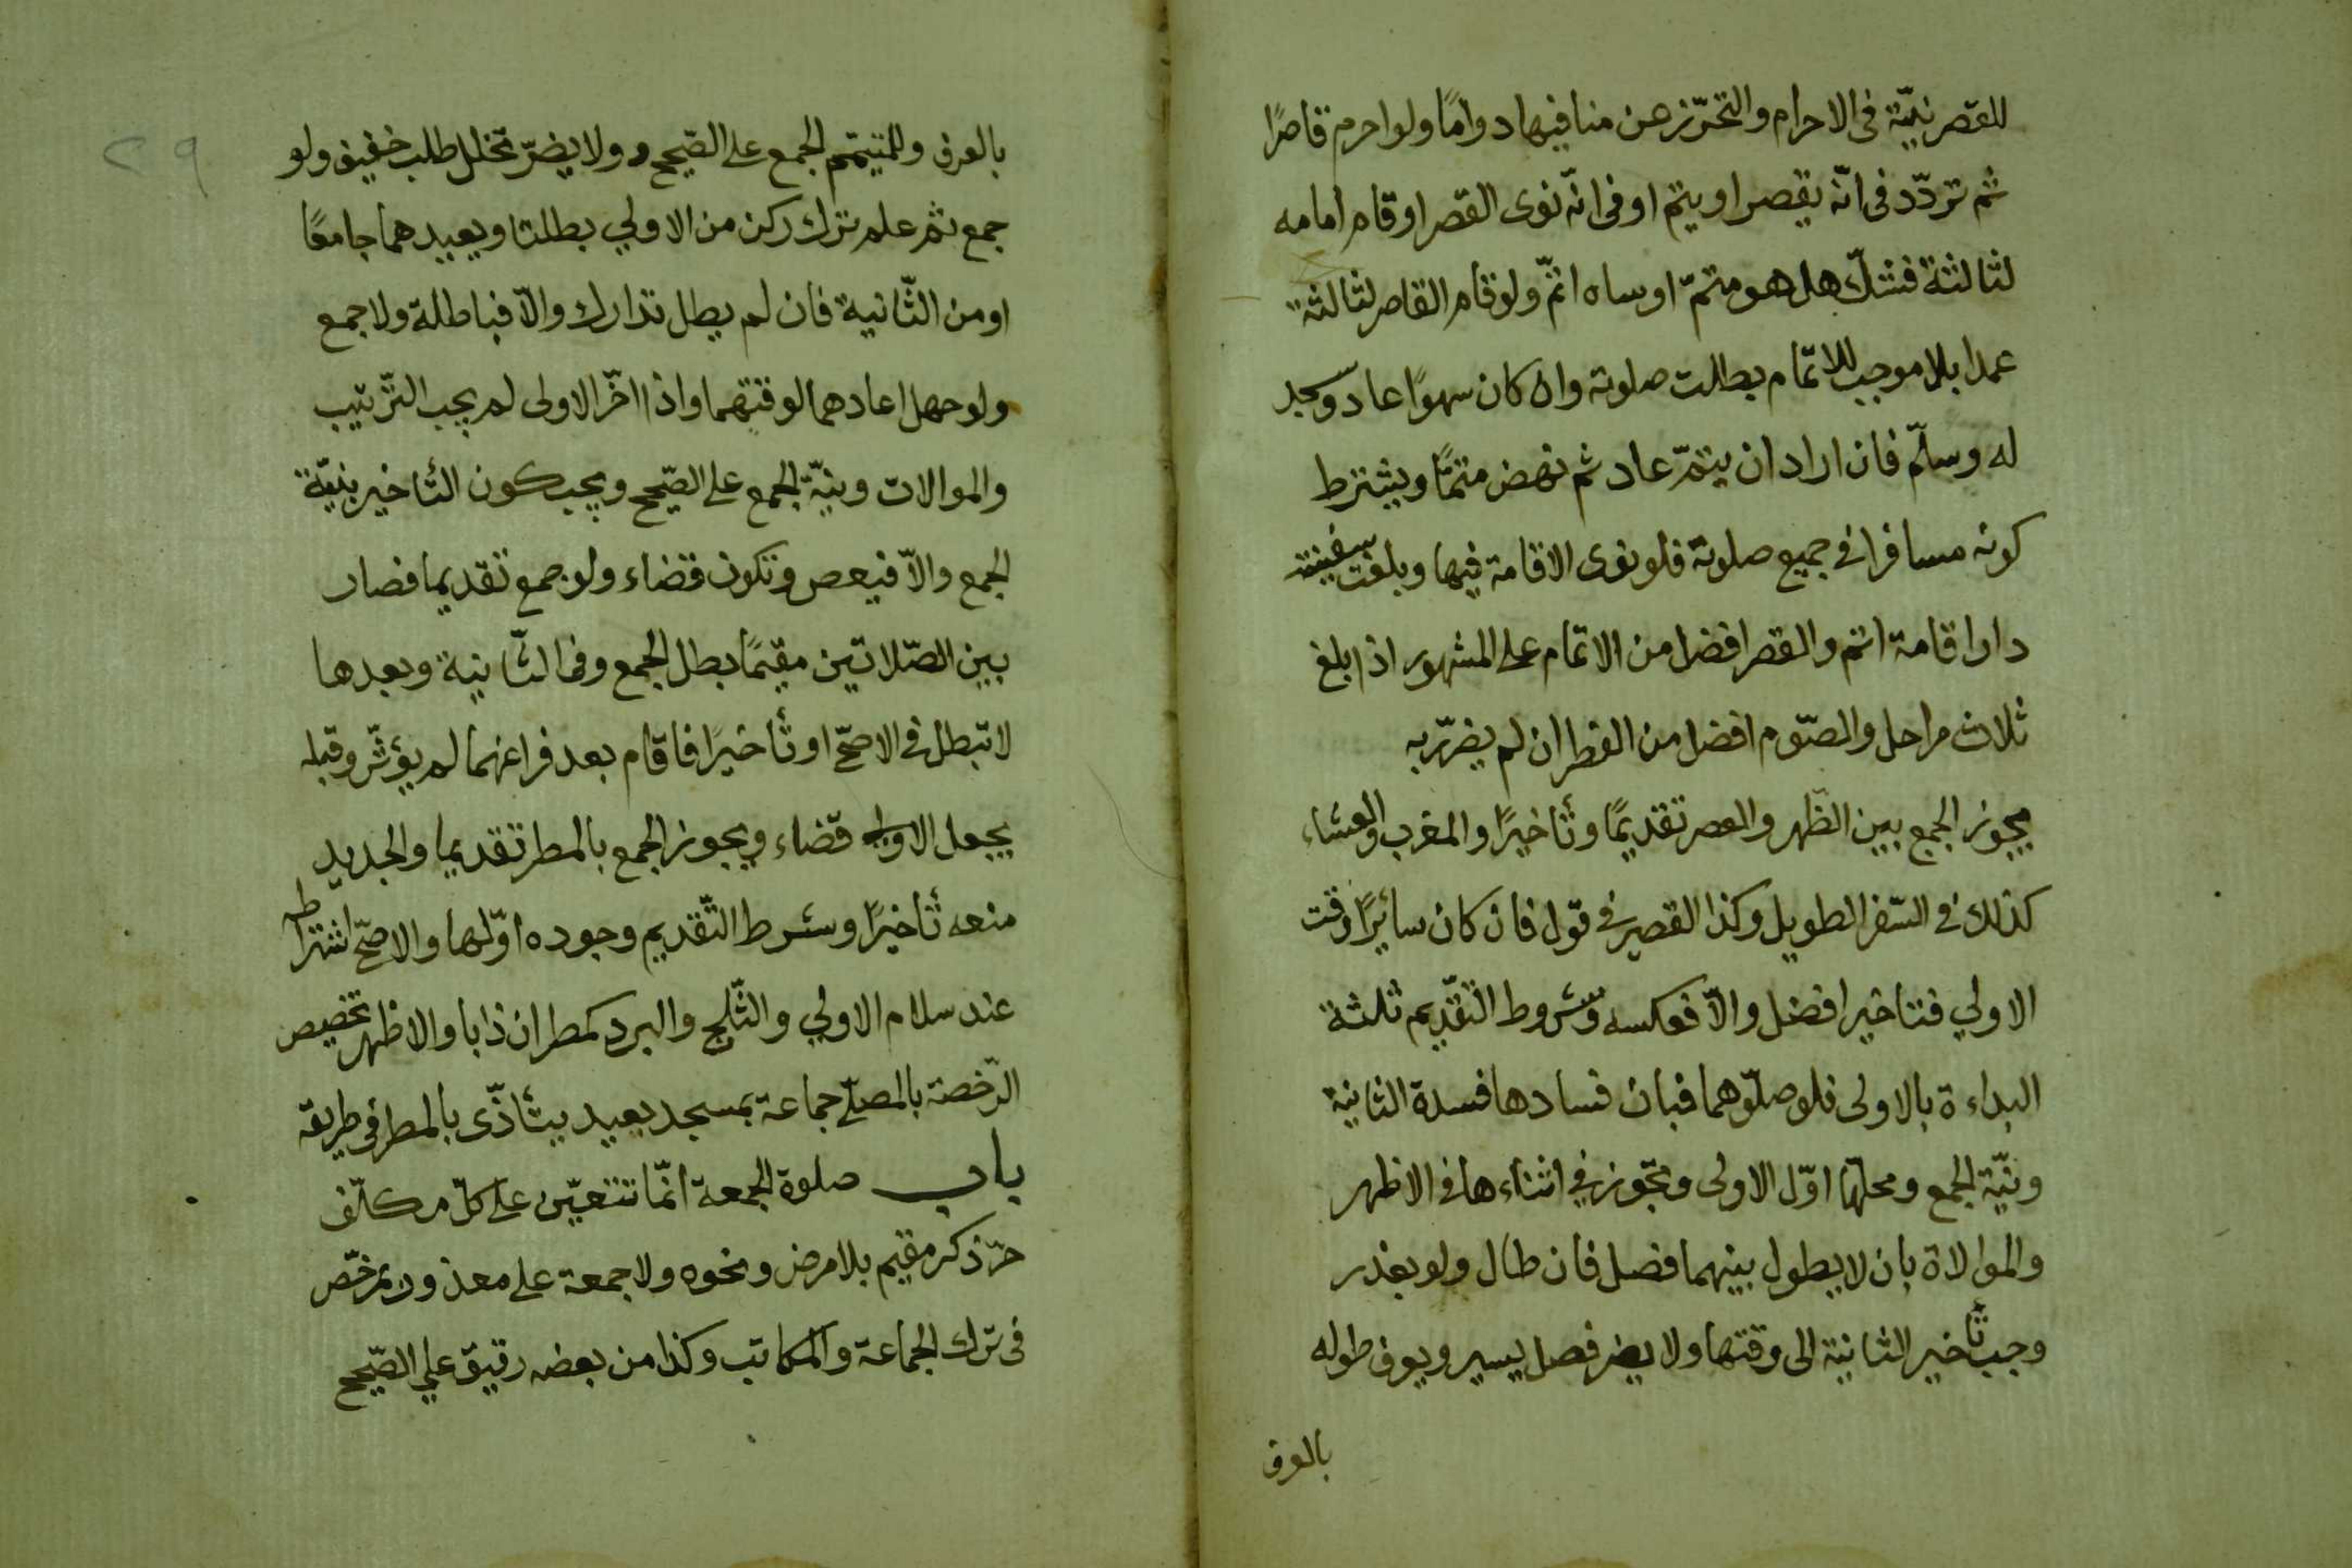 للقصر نيّة فى الاحرام والتحرّز عن منافيها دوامًا ولو احرم قاصرًا
ثم تردّد فى انّه يقصر او يتم او فى انّه نوى القصر او قام امامه
لثالثة فشكّ هل هو متمّ او ساه اتمّ ولو قام القاصر لثالثة
عمدا بلا موجب للاتمام بطلت صلوته وان كان سهوًا عاد وسجد
له وسلّم فان اراد ان يتمّ عاد ثم نهض متمًّا ويشترط
كونه مسافرا فى جميع صلوته فلو نوى الاقامة فيها وبلغت سفينته
دار اقامة اتم والقصر افضل من الاتمام على المشهور اذا بلغ
ثلاث مراحل والصّوم افضل من الفطر ان لم يضرّ به
يجوز الجمع بين الظّهر والعصر تقديمًا وتأخيرًا والمغرب والعشاء
كذلك فى السّفر الطويل وكذا القصير فى قول فان كان سائرًا وقت
الاولي فتاخير افضل والّا فعكسه وشروط التّقديم ثلثة
البداءة بالاولى فلو صلّوهما فبان فسادها فسدة الثانية
ونيّة الجمع ومحلّها اوّل الاولى وتجوز في اثناءها فى الاظهر
والموالاة بان لا يطول بينهما فصل فان طال ولو بعذر
وجب تأخير الثانية الى وقتها ولا يضر فصل يسير ويعرف طوله
بالعرف
٢٩
بالعرف وللمتيمّم الجمع على الصّحيح ولا يضرّ تخلل طلب خفيف ولو
جمع ثم علم ترك ركن من الاولي بطلتا ويعيدهما جامعًا
او من الثّانية فان لم يطل تدارك والّا فباطلة ولا جمع
ولو جهل اعادهما لوقتيهما واذا اخّر الاولى لم يجب التّرتيب
والموالات ونيّة الجمع على الصّحيح ويجب كون التأخير بنيّة
الجمع والّا فيعص وتكون قضاء ولو جمع تقديما فصار
بين الصّلاتين مقيمًا بطل الجمع وفى الثّانية وبعدها
لا تبطل فى الاصحّ او تأخيرًا فاقام بعد فراغهما لم يؤثّر وقبله
يجعل الاولى قضاء ويجوز الجمع بالمطر تقديما والجديد
منعه تأخيرًا وشرط التّقديم وجوده اوّلها والاصحّ اشتراطه
عند سلام الاولي والثّلج والبرد كمطر ان ذابا والاظهر تخصيص
الرّخصة بالمصلّى جماعة بمسجد بعيد يتأذّى بالمطر فى طريقه
باب صلوة الجمعة انّما تتعيّن على كلّ مكلّف
حرّ ذكر مقيم بلا مرض ونحوه ولا جمعة على معذور بمرخّص
فى ترك الجماعة والمكاتب وكذا من بعضه رقيق علي الصّحيح